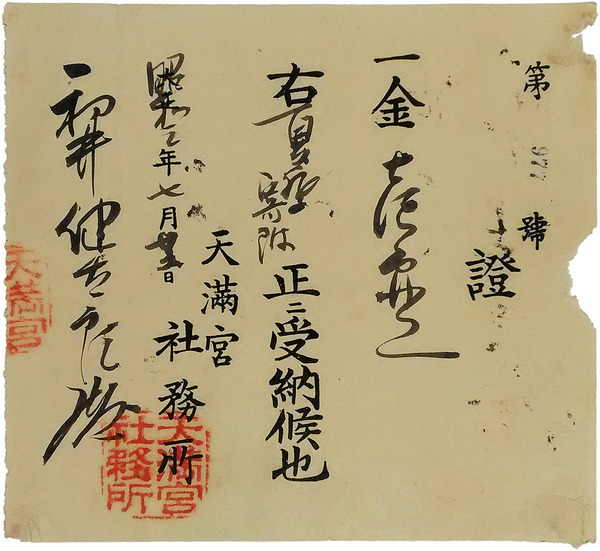 第 977 號
證
一金壱円也
右夏祭寄附正ニ受納候也
天満宮
社務所
昭和二年七月廿五日
初井健太郎殿
天満宮
社務所
天満宮